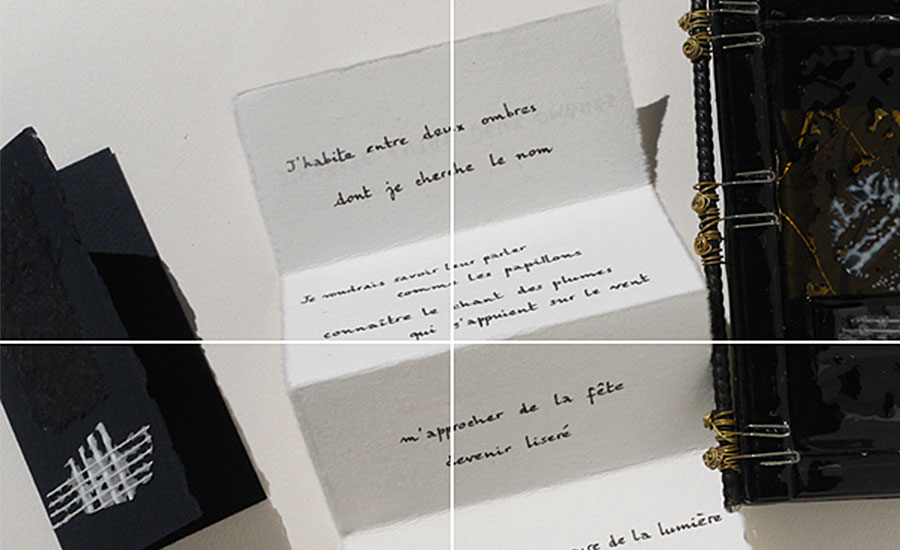 J'habite entre deux ombres
dont je cherche le nom
Je voudrais savoir leur parler
comme les papillons
connaître le chant des plumes
qui s'appuient sur le vent
m'approcher de la fête
devenir liseré
de la lumière